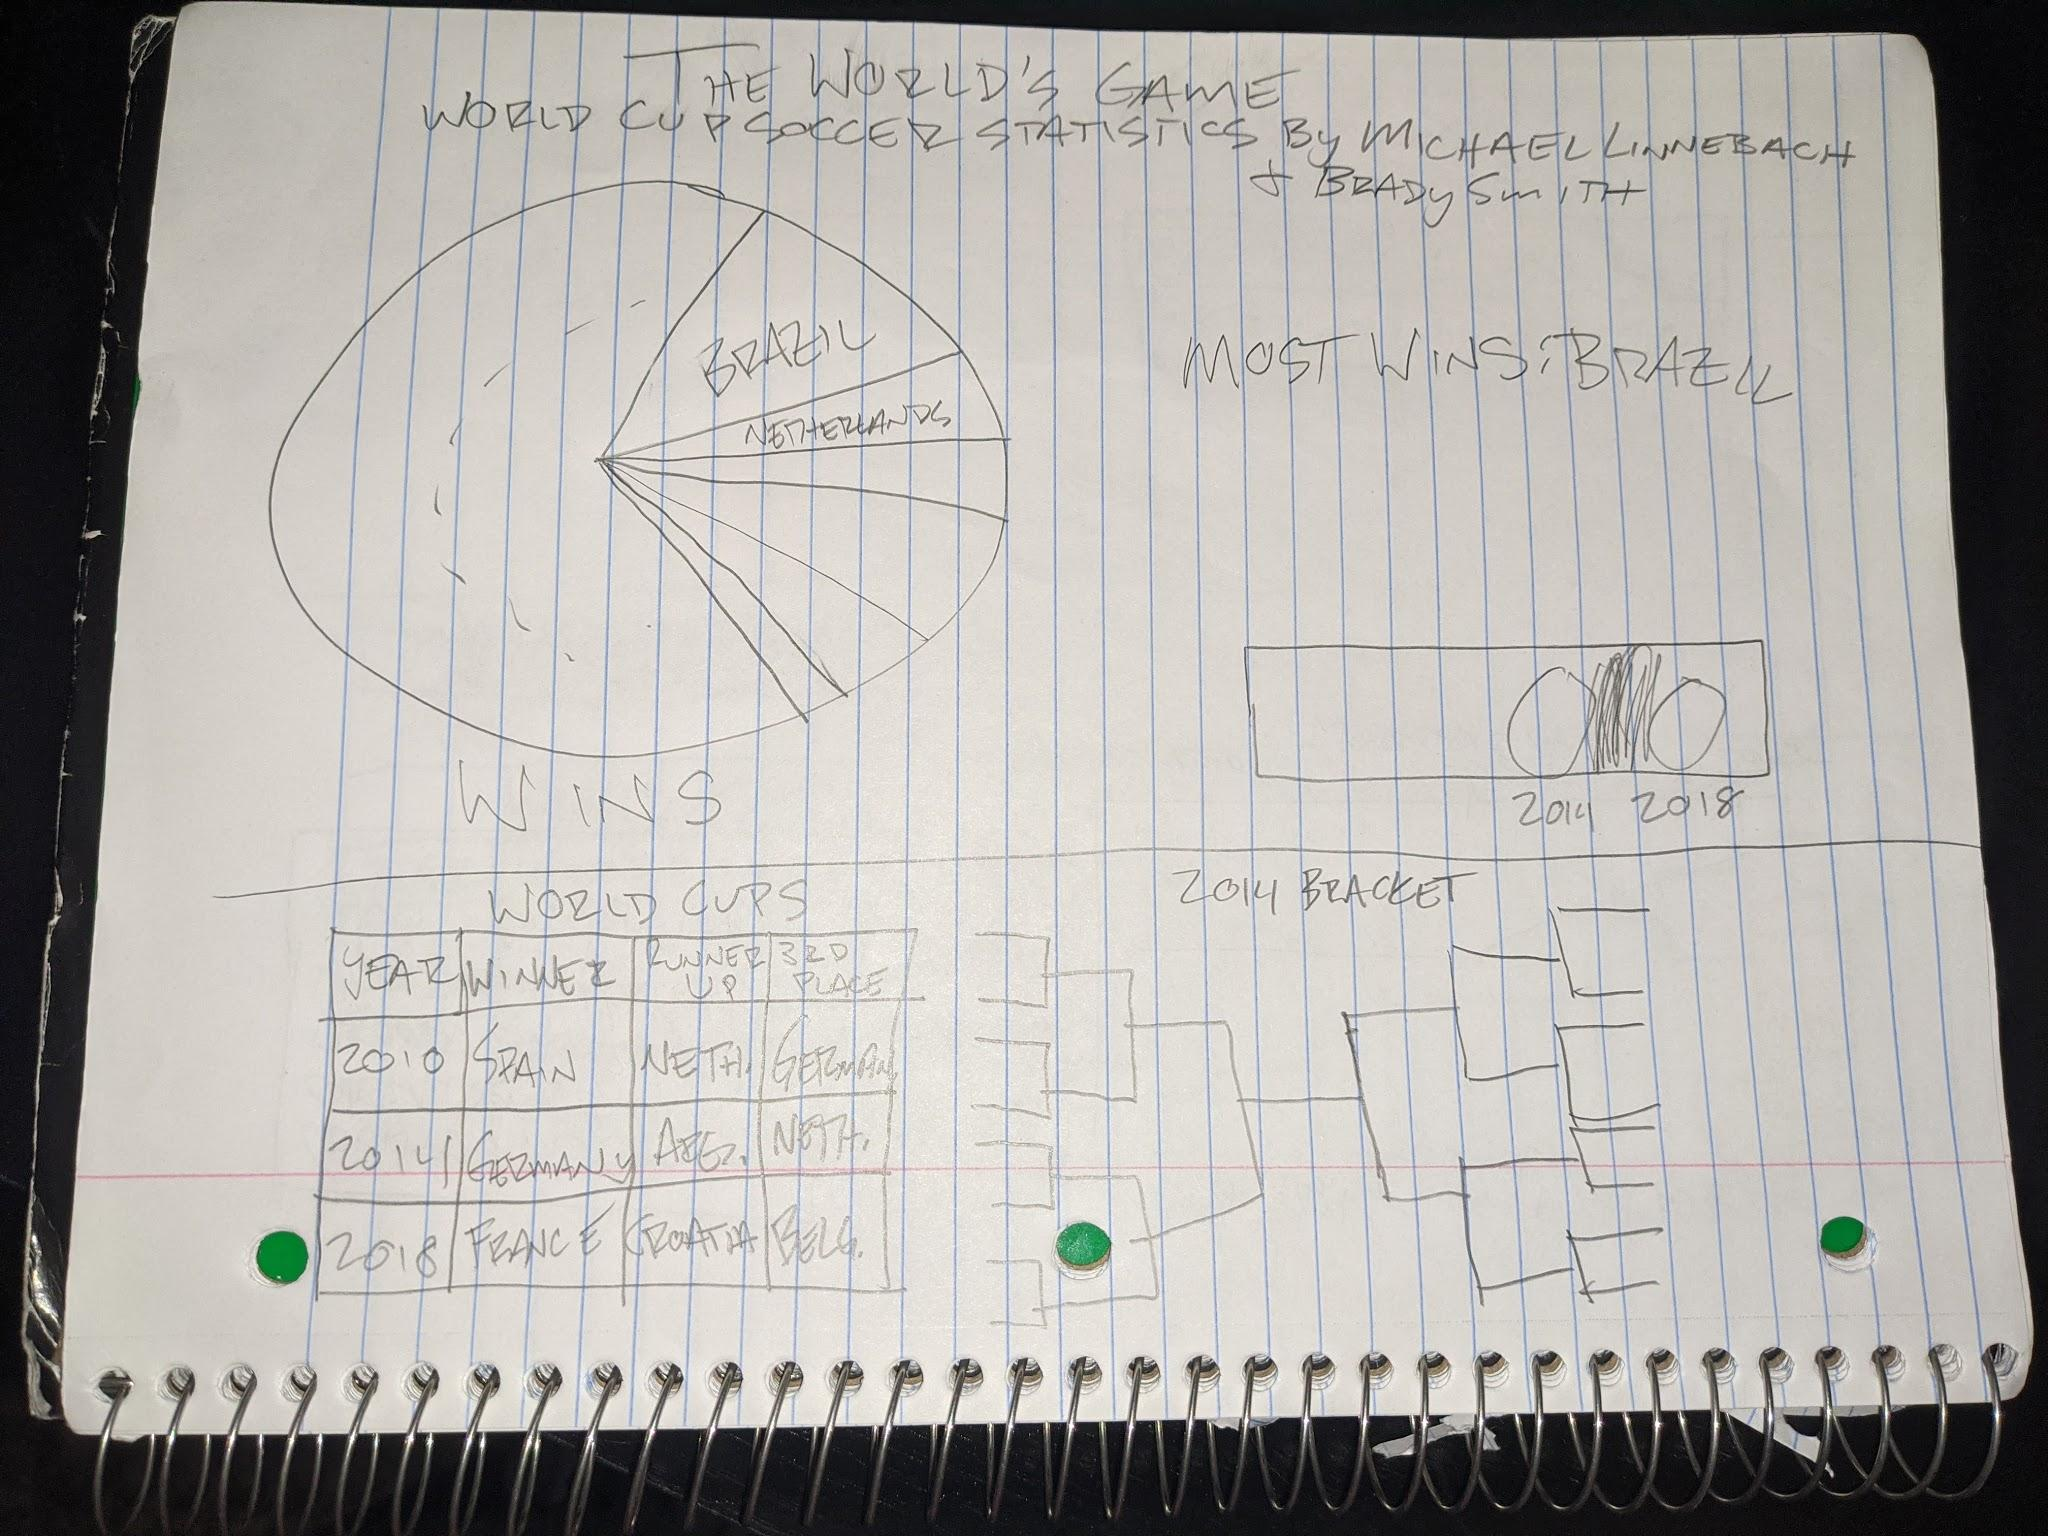 THE WORLD'S GAME
WORLD CUP SOCCER STATISTICS By MICHAEL LINNEBACH
& BRADY SMITH
BRAZIL
NETHERLANDS
WINS
MOST WINS: BRAZIL
2014 2018
WORLD CUPS
YEAR WINNER RUNNER UP 3RD PLACE
2010 SPAIN NETH. GERMAN.
2014 GERMANY ARG. NETH.
2018 FRANCE CROATIA BELG.
2014 BRACKET